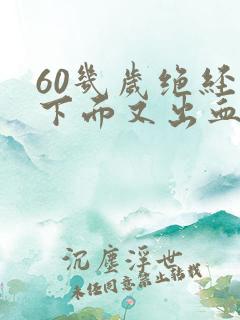 60幾歲绝经
下而又出血
沉塵浮世
未经同意禁止转载